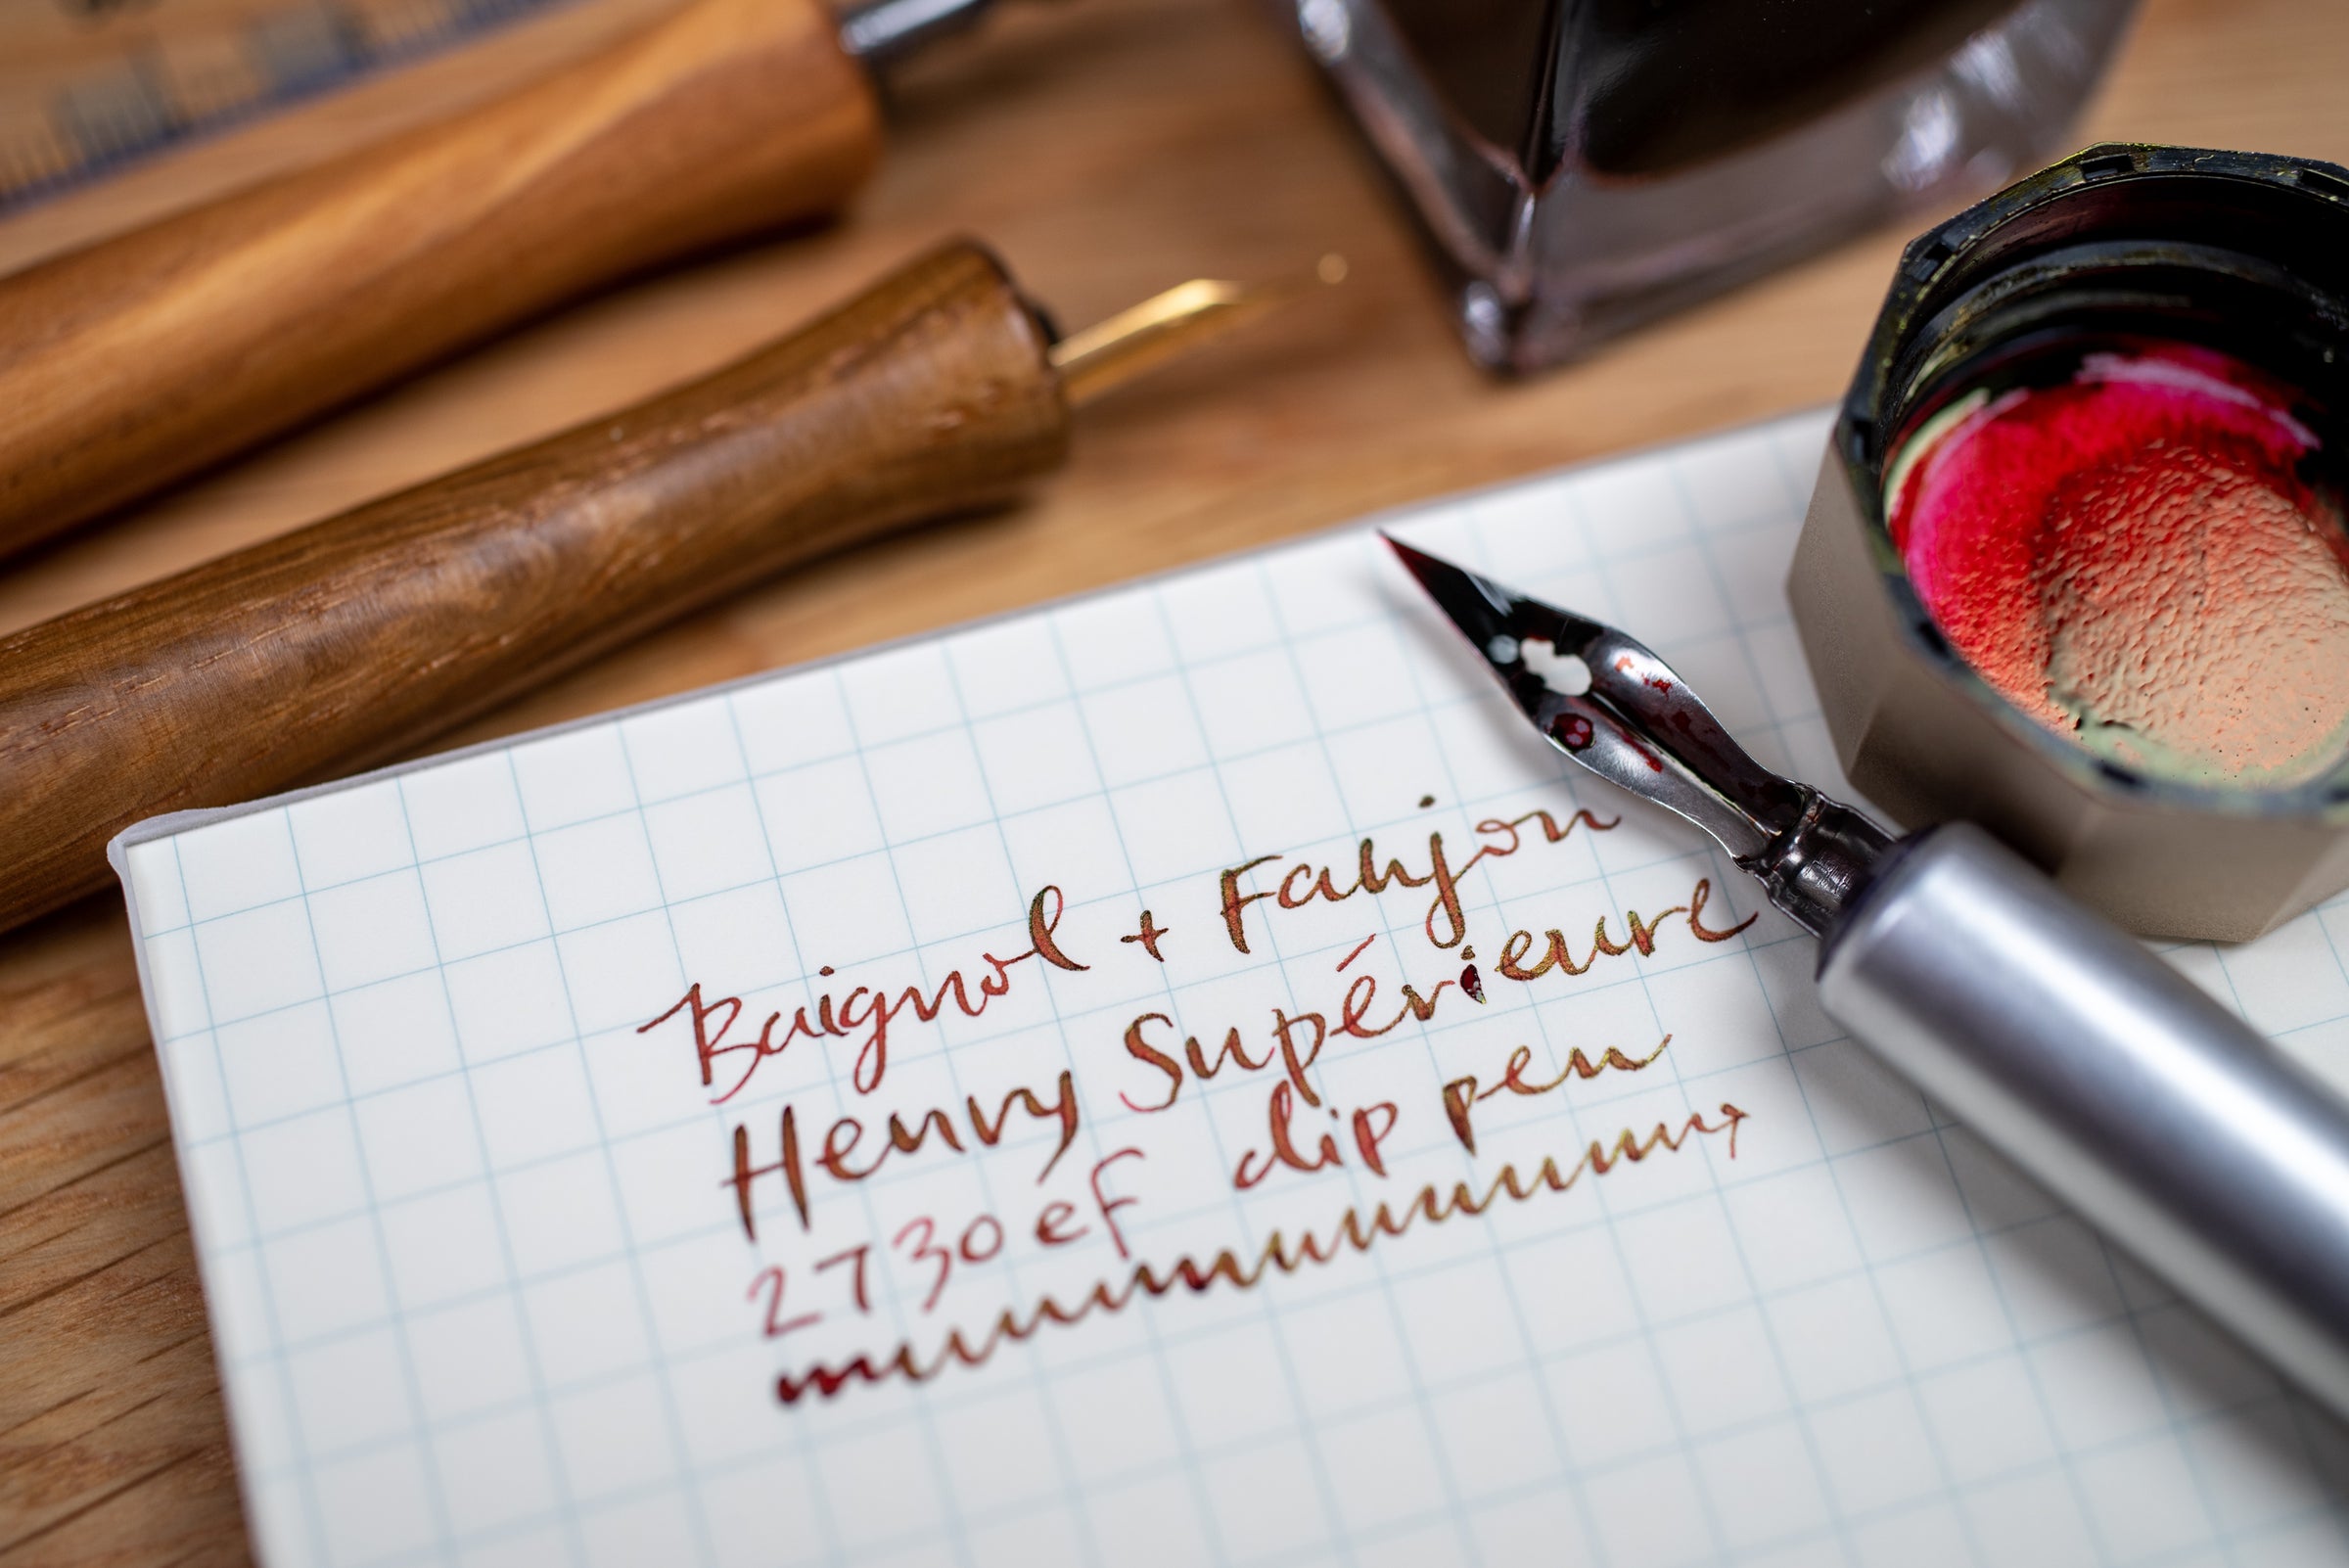 Baignol + Fahjon
Henry Supérieure
2730 ef dip pen